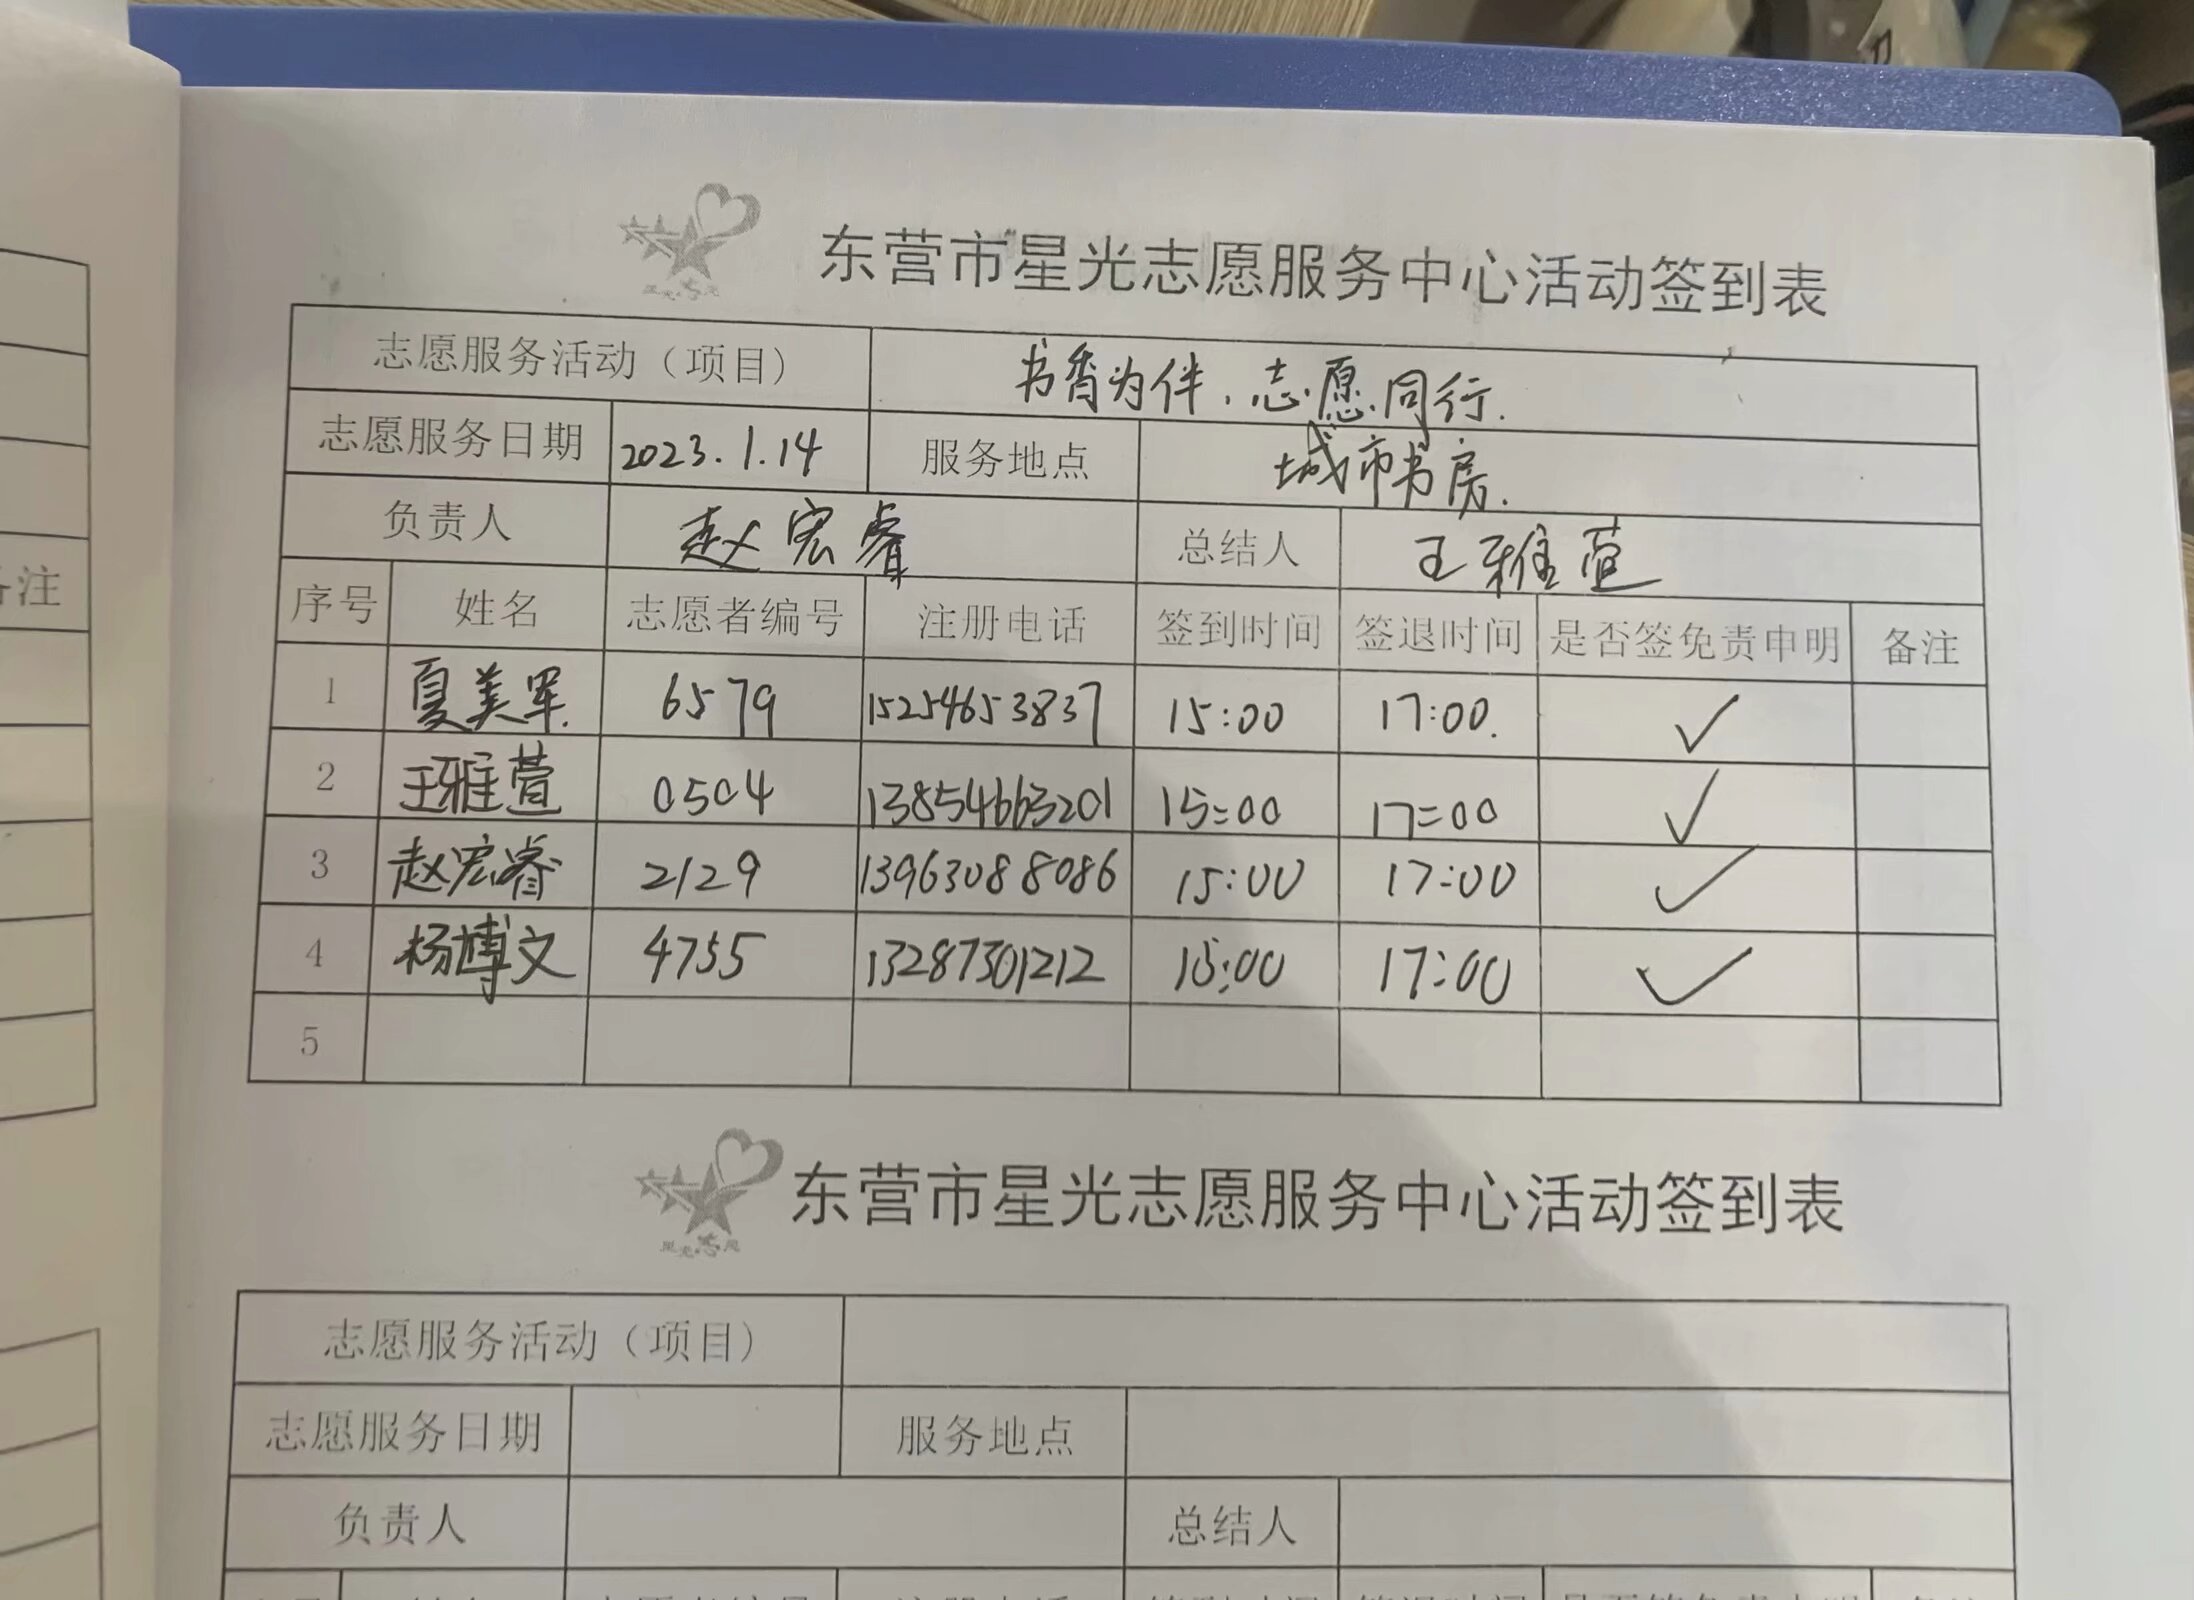 备注
东营市星光志愿服务中心活动签到表
志愿服务活动（项目） 书香为伴，志愿同行.
志愿服务日期 2023.1.14 服务地点 城市书房.
负责人 赵宏睿 总结人 王雅萱
序号 姓名 志愿者编号 注册电话 签到时间 签退时间 是否签免责申明 备注
1 夏美军. 6579 15254653837 15:00 17:00. ✓
2 王雅萱 0504 13854663201 15:00 17:00 ✓
3 赵宏睿 2129 13963088086 15:00 17:00 ✓
4 杨博文 4755 13287301212 15:00 17:00 ✓
5
东营市星光志愿服务中心活动签到表
志愿服务活动（项目）
志愿服务日期 服务地点
负责人 总结人